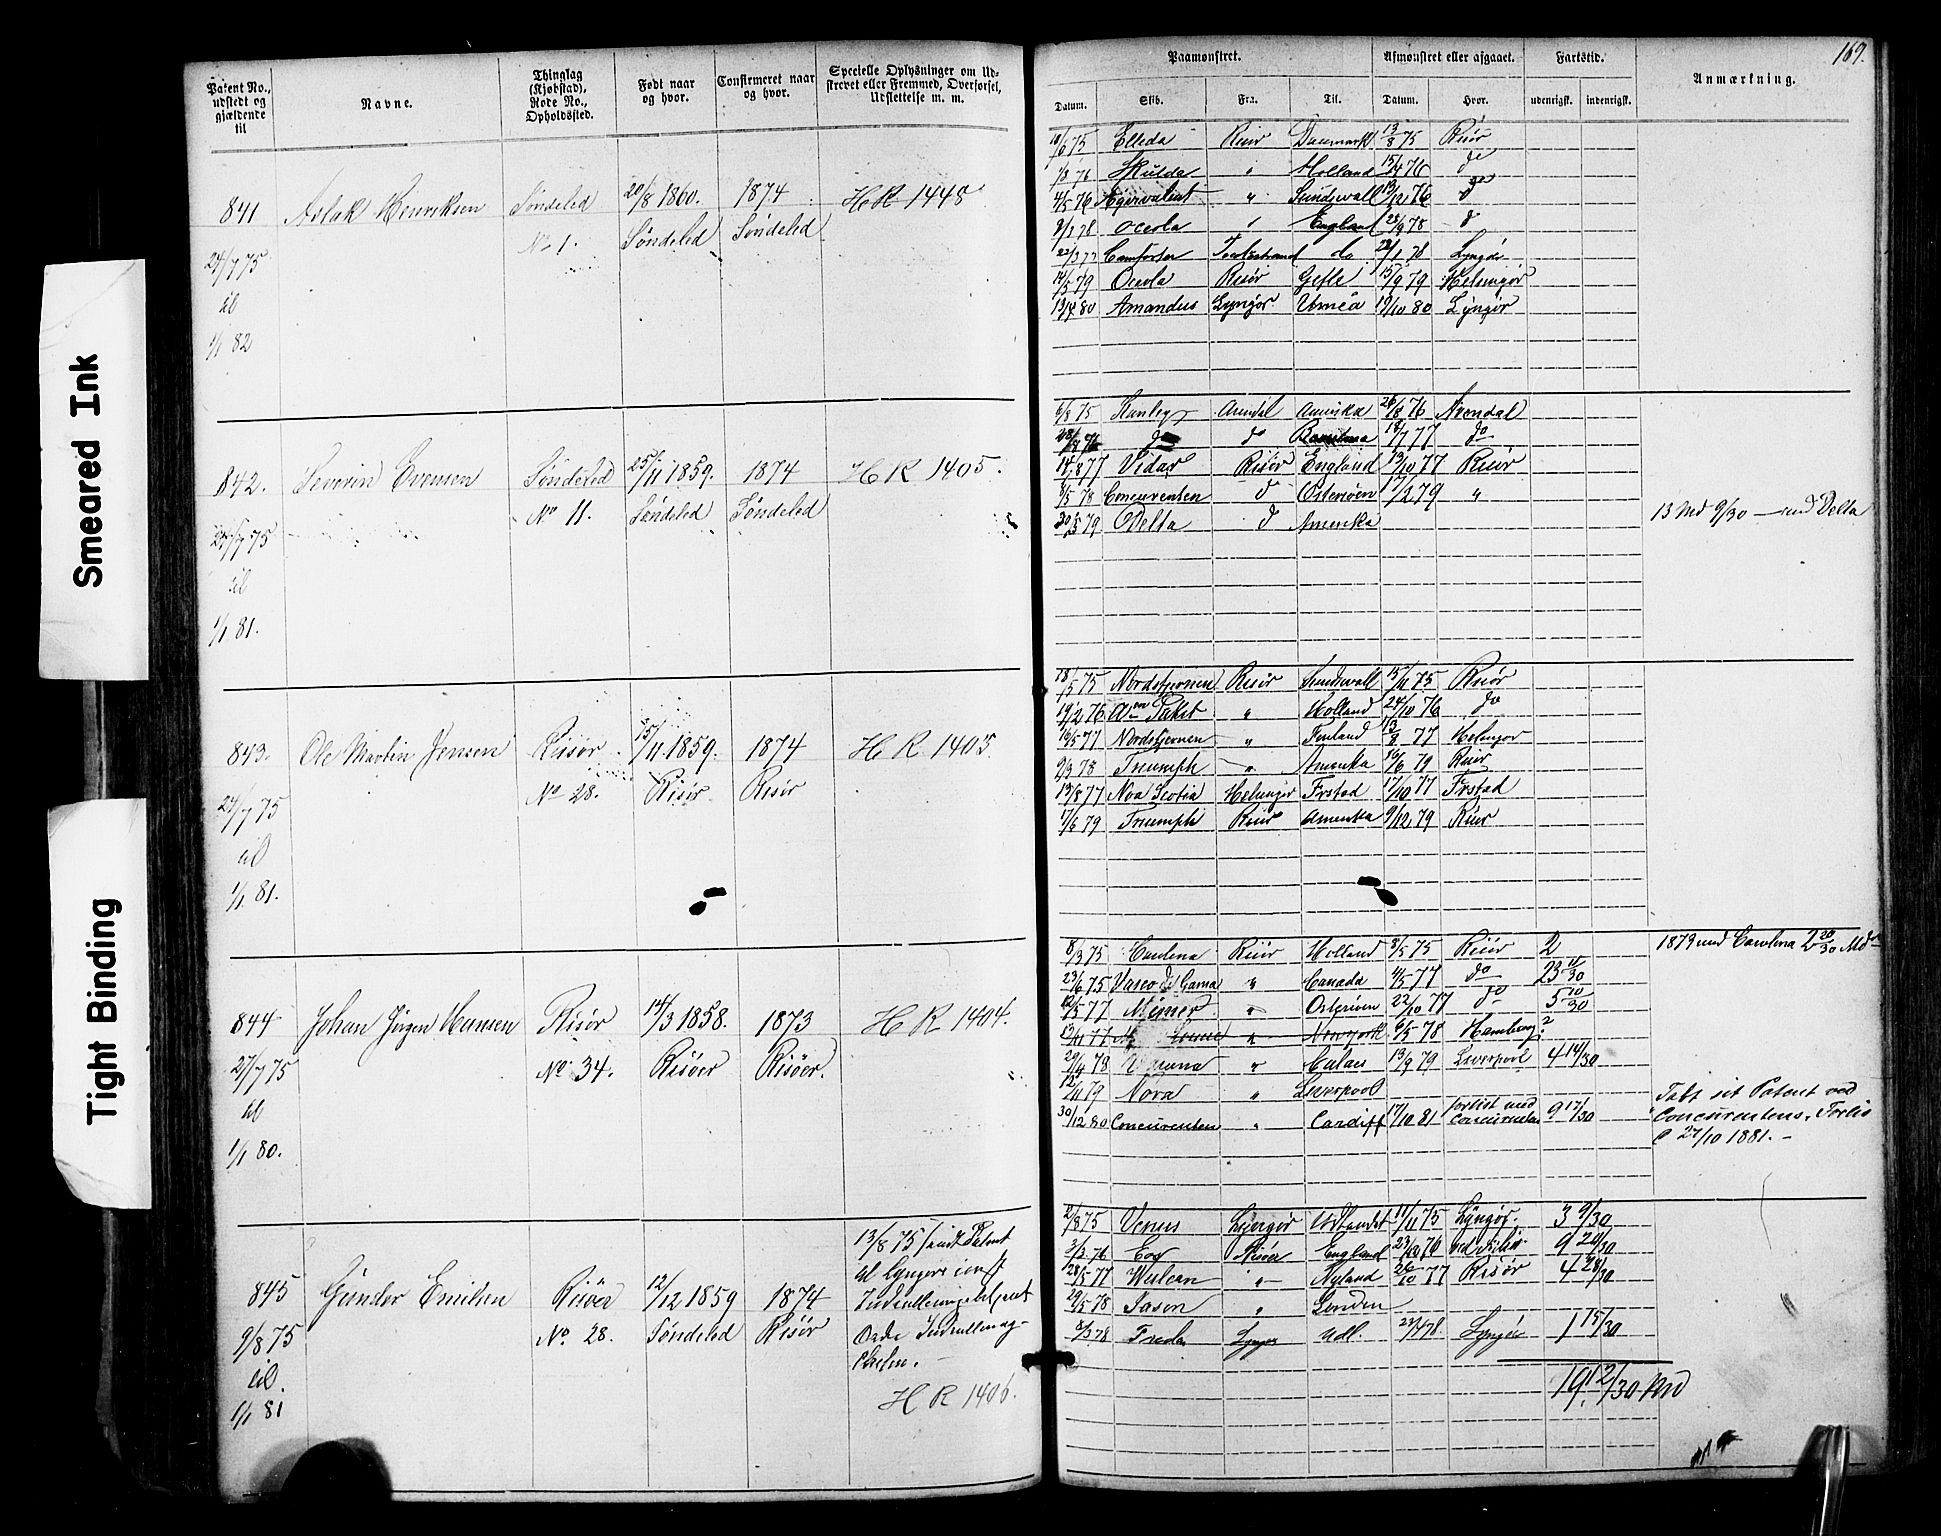 Smeared Ink
Tight Binding
Patent No., udstedt og gjældende til
Navne.
Thinglag (Kjøbstad), Rode No., Opholdssted.
Født naar og hvor.
Confirmeret naar og hvor.
Specielle Oplysninger om Udskrevet eller Fremmed, Overførsel, Udslettelse m. m.
841 Aslak Henriksen Søndeled 20/8 1860. 1874 HR 1448
No 1. Søndeled Søndeled
24/7 75
til
1/1 82
842. Severin Evensen Søndeled 25/11 1859. 1874 HR 1405.
No 11. Søndeled Søndeled
24/7 75
til
1/1 81.
843. Ole Martin Jensen Risør 15/11 1859. 1874 HR 1403
No 28. Risør Risør
27/7 75
til
1/1 81.
844 Johan Jørgen Hansen Risør 14/3 1858. 1873 HR 1404.
No 34. Risöer Risöer.
27/7 75
til
1/1 80.
13/8 75 sendt Patent
til Lyngørs
845 Gunder Emilsen Risöer 12/12 1859 1874
9/8 75 No. 28. Søndeled Risör
til.
1/1 81
HR 1406.
169.
Paamønstret.
Afmønstret eller afgaaet.
Fartstid.
Anmærkning.
Datum. Skib. Fra. Til. Datum. Hvor. udenrigsk. indenrigsk.
18/6 75 Elleda Risør Danmark 13/8 75 Risör
1/3 76 Skulda " Holland 15/4 76 do
4/5 76 " Sundswall 13/12 76 do
2/1 78 Oceola " England 28/9 78 d
22/3 77 Comforter Tvedestrand do 12/1 78 Lyngör
14/5 79 Oceola Risør Gefle 15/9 79 Helsingør
13/4 80 Amandus Lyngör Umeå 9/10 80 Lyngör
6/8 75 Stanley Arendal Amerika 26/8 76 Arendal
28/8 76 do do 18/7 77 do
14/8 77 Vidar Risør England 13/10 77 Risör
9/5 78 Concurenten d Østersøen 17/2 79 "
20/3 79 Delta d Amerika
13 Md 9/30 — med Delta
18/5 75 Nordstjernen Risör Sundswall 15/11 75 Risör
19/2 76 Paket " Holland 24/10 76 do
16/5 77 Nordstjernen " Finland 13/8 77 Helsingør
9/3 78 Triumph " Amerika 16/6 79 Risør
13/8 77 Nova Scotia Helsingør Frstad 17/10 77 Frstad
1/6 79 Triumph Risör Amerika 9/12 79 Risør
8/3 75 Risör Holland 8/5 75 Risør 2
1879 med Carolina 2 20/30 Md
23/6 75 Vasco d Gama " Canada 4/5 77 do 23 11/30
12/5 77 Mimer " Ostersöen 22/10 77 do 5 10/30
13/11 77 " Newyork 6/5 78 Hamborg?
29/4 78 " Calais 13/9 79 Liverpool 4 14/30
12/11 79 Nora " Liverpool
30/12 80 Concurenten " Cardiff 17/10 81 forlist med Concurenten 9 17/30
Tabt sit Patent ved
Concurentens Forlis
27/10 1881. —
2/8 75 Venus Lyngör Udlandet 11/11 75 Lyngör. 3 9/30
3/3 76 Eos Risør England 23/12 76 ved Forlis 9 20/30
28/5 77 Wulcan " Nyland 26/10 77 Risør 4 28/30
29/5 78 Jason " London
8/3 78 Lyngör Udl. 23/4 78 Lyngör 1 15/30
19 12/30 Md